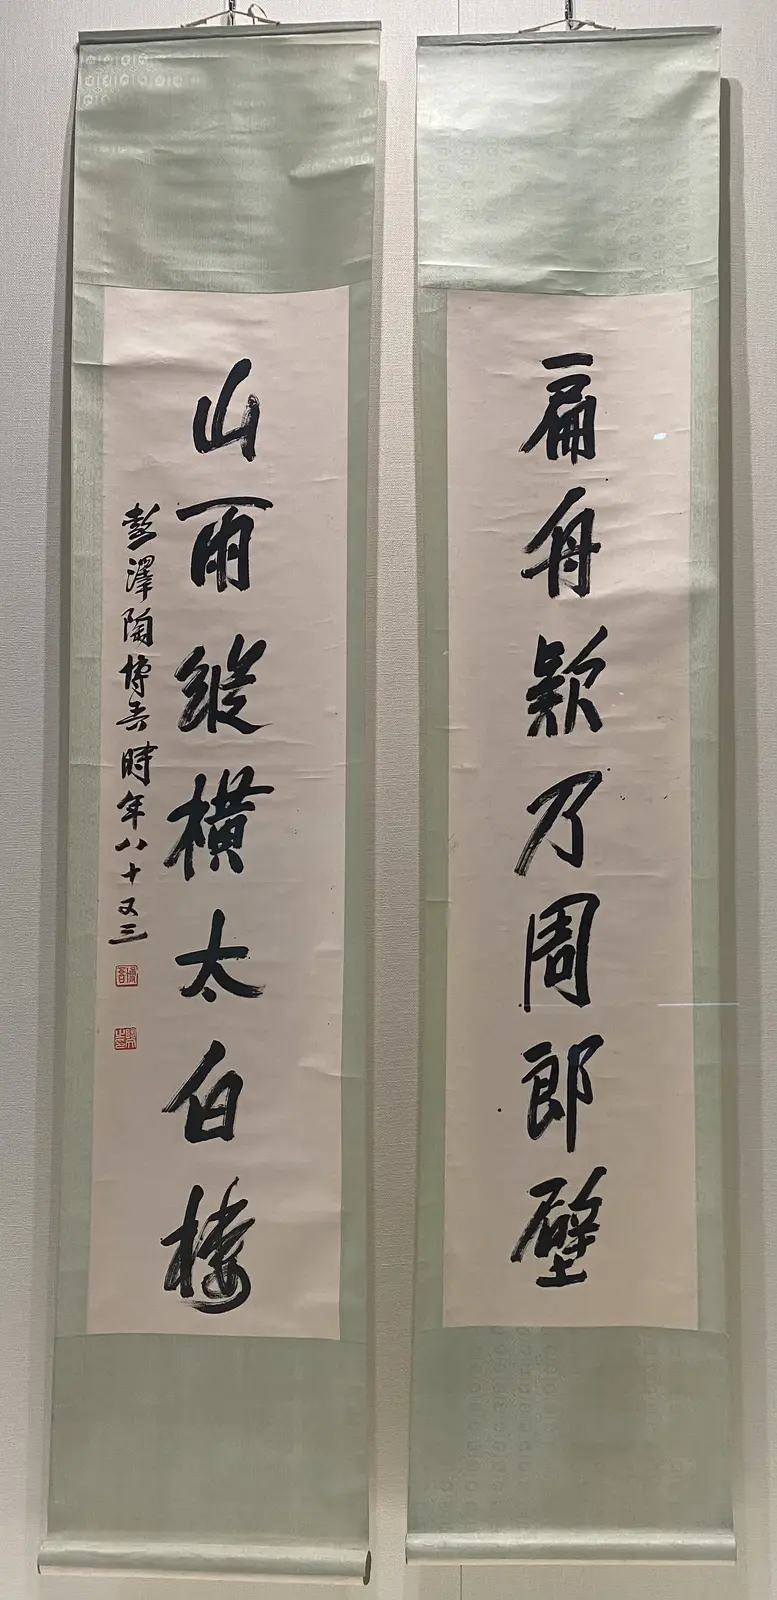 扁舟欵乃周郎壁
山雨縱橫太白樓
彭澤陶博吾時年八十又三